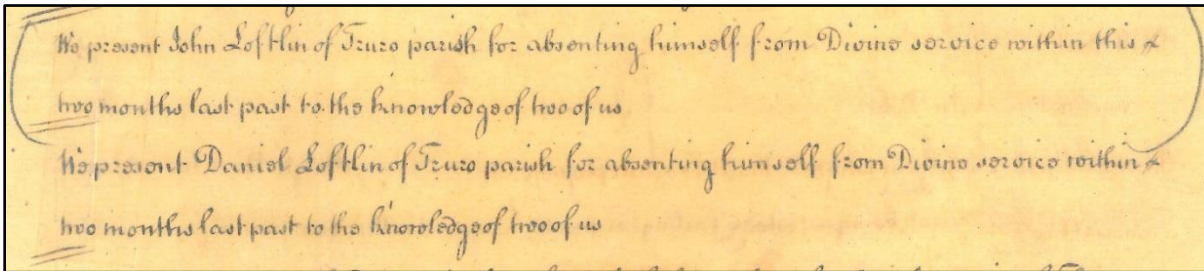 We present John Loftlin of Truro parish for absenting himself from Divine service within this
two months last past to the knowledge of two of us
We present Daniel Loftlin of Truro parish for absenting himself from Divine service within
two months last past to the knowledge of two of us